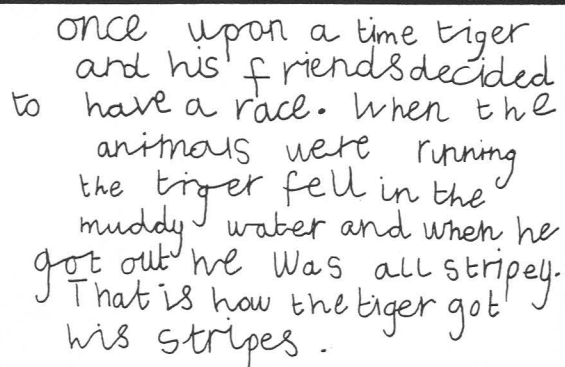 once upon a time tiger
and his friends decided
to have a race. When the
animals were running
the tiger fell in the
muddy water and when he
got out he was all stripey.
That is how the tiger got
his stripes.